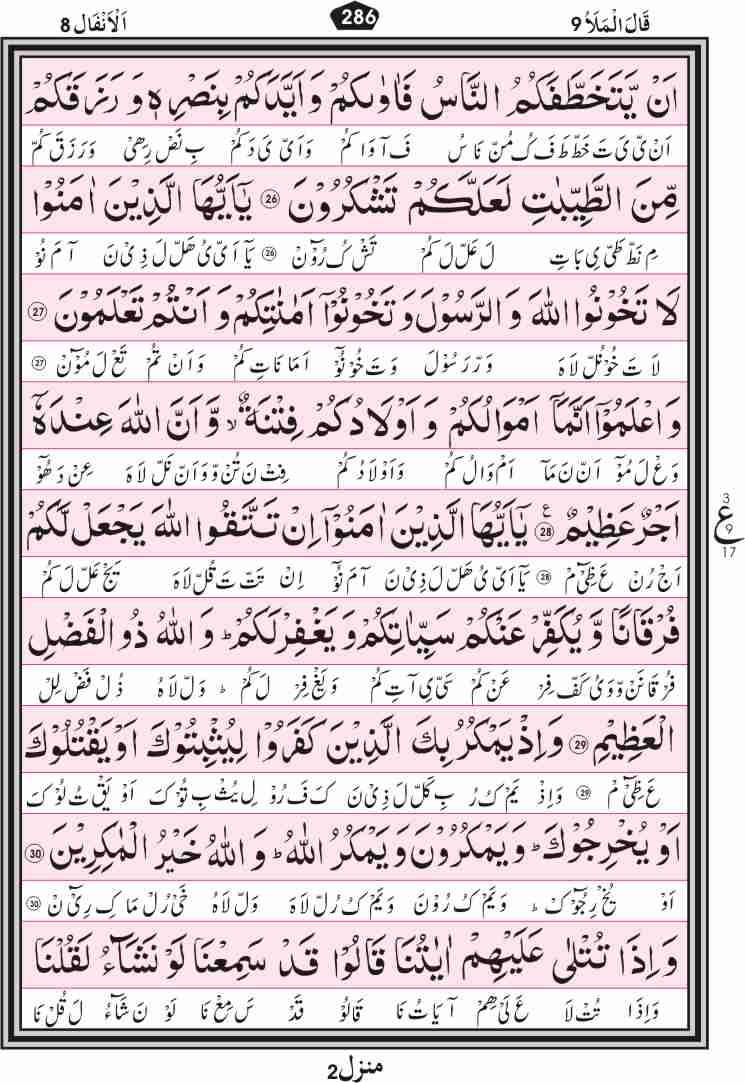 قَالَ الْمَلَاُ 9 286 اَلْاَنْفَال 8
اَنْ يَّتَخَطَّفَكُمُ النَّاسُ فَاٰوٰىكُمْ وَاَيَّدَكُمْ بِنَصْرِهٖ وَرَزَقَكُمْ
اَنْ یَّ یَ تَ خَطْ طَ فَ کُ مُنْ نَا سُ فَ آ وَا کُمْ وَ اَیْ یَ دَ کُمْ بِ نَصْ رِھِیْ وَ رَ زَ قَ کُمْ
مِّنَ الطَّيِّبٰتِ لَعَلَّكُمْ تَشْكُرُوْنَ 26 يٰۤاَيُّهَا الَّذِيْنَ اٰمَنُوْا
مِ نَطْ طَیْ یِ بَا تِ لَ عَلْ لَ کُمْ تَشْ کُ رُوْٓنْ 26 یَآ اَیْ یُ ھَلْ لَ ذِیْ نَ آ مَ نُوْ
لَا تَخُوْنُوا اللّٰهَ وَالرَّسُوْلَ وَتَخُوْنُوْۤا اَمٰنٰتِكُمْ وَاَنْتُمْ تَعْلَمُوْنَ 27
لَا تَ خُوْ نُلْ لَا ہَ وَرْ رَ سُوْ لَ وَ تَ خُوْ نُوْٓ اَ مَا نَا تِ کُمْ وَ اَنْ تُمْ تَعْ لَ مُوْٓنْ 27
وَاعْلَمُوْۤا اَنَّمَاۤ اَمْوَالُكُمْ وَاَوْلَادُكُمْ فِتْنَةٌ ۙ وَّاَنَّ اللّٰهَ عِنْدَهٗۤ
وَعْ لَ مُوْٓ اَنْ نَ مَآ اَمْ وَالُ کُمْ وَ اَوْ لَا دُ کُمْ فِتْ نَ تُنْ وْ وَ اَنْ نَلْ لَا ہَ عِنْ دَ ھُوْٓ
اَجْرٌ عَظِيْمٌ 28 ع يٰۤاَيُّهَا الَّذِيْنَ اٰمَنُوْۤا اِنْ تَتَّقُوا اللّٰهَ يَجْعَلْ لَّكُمْ
ع 3 9 17
اَجْ رُنْ عَ ظِیْٓ مْ 28 یَآ اَیْ یُ ھَلْ لَ ذِیْ نَ آ مَ نُوْٓ اِنْ تَتْ تَ قُلْ لَا ہَ یَجْ عَلْ لَ کُمْ
فُرْقَانًا وَّيُكَفِّرْ عَنْكُمْ سَيِّاٰتِكُمْ وَيَغْفِرْ لَكُمْ ؕ وَاللّٰهُ ذُو الْفَضْلِ
فُرْ قَا نَنْ وْ وَ یُ کَفْ فِرْ عَنْ کُمْ سَیْ یِ آ تِ کُمْ وَ یَغْ فِرْ لَ کُمْ ؕ وَلْ لَا ہُ ذُ لْ فَضْ لِلْ
الْعَظِيْمِ 29 وَاِذْ يَمْكُرُ بِكَ الَّذِيْنَ كَفَرُوْا لِيُثْبِتُوْكَ اَوْ يَقْتُلُوْكَ
عَ ظِیْٓ مْ 29 وَ اِذْ یَمْ کُ رُ بِ کَلْ لَ ذِیْ نَ کَ فَ رُوْ لِ یُثْ بِ تُوْ کَ اَوْ یَقْ تُ لُوْ کَ
اَوْ يُخْرِجُوْكَ ؕ وَيَمْكُرُوْنَ وَيَمْكُرُ اللّٰهُ ؕ وَاللّٰهُ خَيْرُ الْمٰكِرِيْنَ 30
اَوْ یُخْ رِ جُوْٓ کْ ؕ وَ یَمْ کُ رُوْ نَ وَ یَمْ کُ رُلْ لَا ہْ وَلْ لَا ہُ خَیْ رُلْ مَا کِ رِیْٓ نْ 30
وَاِذَا تُتْلٰى عَلَيْهِمْ اٰيٰتُنَا قَالُوْا قَدْ سَمِعْنَا لَوْ نَشَآءُ لَقُلْنَا
وَ اِذَا تُتْ لَا عَ لَیْ ھِمْ آ یَا تُ نَا قَا لُوْ قَدْ سَ مِعْ نَا لَوْ نَ شَآءُ لَ قُلْ نَا
منزل 2